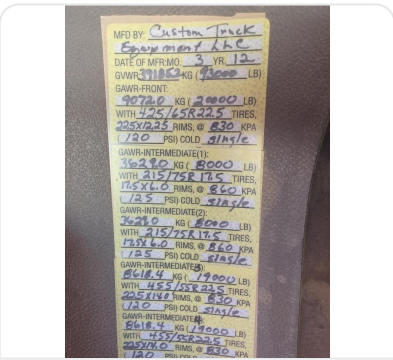 MFD BY: Custom Truck
Equipment LLC
DATE OF MFR: MO. 3 YR. 12
GVWR KG (93000 LB)
GAWR-FRONT:
9072.0 KG (20000 LB)
WITH 425/65R22.5 TIRES,
22.5X12.25 RIMS, @ 830 KPA
(120 PSI) COLD single
GAWR-INTERMEDIATE(1):
3629.0 KG (8000 LB)
WITH 215/75R 17.5 TIRES,
17.5X6.0 RIMS, @ 860 KPA
(125 PSI) COLD single
GAWR-INTERMEDIATE(2):
3629.0 KG (8000 LB)
WITH 215/75R17.5 TIRES,
17.5X6.0 RIMS, @ 860 KPA
(125 PSI) COLD single
GAWR-INTERMEDIATE(3):
8618.4 KG (19000 LB)
WITH 455/55R22.5 TIRES,
22.5X14.0 RIMS, @ 830 KPA
(120 PSI) COLD single
GAWR-INTERMEDIATE 4:
8618.4 KG (19000 LB)
WITH 455/55R22.5 TIRES,
22.5X14.0 RIMS, @ 830 KPA
(120 PSI) COLD single